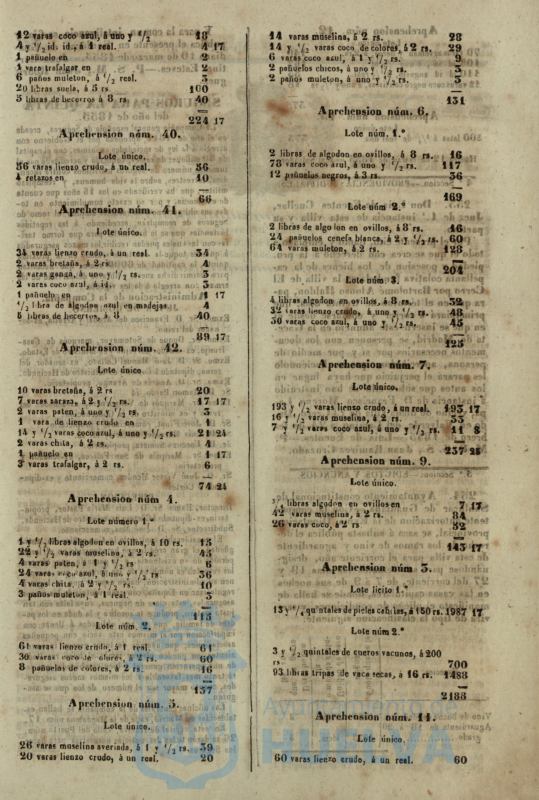 12 varas coco azul, á uno y 1/2 18
4 y 1/2 id. id., á 1 real. 4 17
1 pañuelo en 2
1 vara trafalgar en 2
6 paños muleton, á 1/2 real. 3
20 libras suela, á 5 rs. 100
5 libras de becerros á 8 rs. 40
224 17
Aprehension núm. 40.
Lote único.
56 varas lienzo crudo, á un real. 56
4 retazos en 10
66
Aprehension núm. 41.
Lote único.
34 varas lienzo crudo, á un real. 34
2 varas bretaña, á 2 rs 4
2 varas ganga, á uno y 1/2 rs. 3
2 varas coco azul, á id. 3
1 pañuelo en 1 17
1/2 libra de algodon azul en madejas 4
5 libras de becerros, á 8 40
89 17
Aprehension núm. 42.
Lote único.
10 varas bretaña, á 2 rs 20
7 varas zaraza, á 2 y 1/2 rs. 17 17
2 varas paten, á uno y 1/2 rs. 3
1 vara de lienzo crudo en 1
14 y 1/2 varas coco azul, á uno y 1/2 rs. 21 24
2 varas chita, á 2 rs. 4
1 pañuelo en 1 17
3 varas trafalgar, á 2 rs. 6
74 24
Aprehension núm 4.
Lote número 1.º
1 y 1/2 libras algodon en ovillos, á 10 rs. 15
22 y 1/2 varas muselina, á 2 rs. 45
4 varas paten, á 1 y 1/2 rs 6
24 varas coco azul, á uno y 1/2 rs 36
4 varas chita, á 2 y 1/2 rs. 10
3 paños muleton, á 1 real. 3
115
Lote núm. 2.
61 varas lienzo crudo, á 1 real. 61
30 varas coco de colores, á 2 rs. 60
8 pañuelos de colores, á 2 rs. 16
137
Aprehension núm. 5.
Lote único.
26 varas muselina averiada, á 1 y 1/2 rs. 39
20 varas lienzo crudo, á un real. 20
14 varas muselina, á 2 rs. 28
14 y 1/2 varas coco de colores, á 2 rs. 29
6 varas coco azul, á 1 y 1/2 rs. 9
2 pañuelos chicos, á uno y 1/2 rs. 3
2 paños muleton, á uno y 1/2 rs. 3
131
Aprehension núm. 6.
Lote núm. 1.º
2 libras de algodon en ovillos, á 8 rs. 16
78 varas coco azul, á uno y 1/2 rs. 117
12 pañuelos negros, á 3 rs. 36
169
Lote núm 2.º
2 libras de algodon en ovillos, á 8 rs. 16
24 pañuelos cenefa blanca, á 2 y 1/2 rs. 60
64 varas muleton, á 2 rs. 128
204
Lote núm. 3.
4 libras algodon en ovillos, á 8 rs. 32
32 varas lienzo crudo, á uno y 1/2 rs. 48
30 varas coco azul, á uno y 1/2 rs. 45
125
Aprehension núm. 7.
Lote único.
193 y 1/2 varas lienzo crudo, á un real. 193 17
16 y 1/2 varas muselina, á 2 rs. 33
7 y 1/2 varas coco azul, á uno y 1/2 rs. 11 8
237 25
Aprehension núm. 9.
Lote único.
libras algodon en ovillos en 7 17
42 varas muselina, á 2 rs. 84
26 varas coco, á 2 rs 52
143 17
Aprehension núm. 3.
Lote lícito 1.º
quintales de pieles cabrías, á 150 rs. 1987 17
Lote núm 2.º
3 y 1/2 quintales de cueros vacunos, á 200
rs. 700
93 libras tripas de vaca secas, á 16 rs. 1488
2188
Aprehension núm. 11.
Lote único.
60 varas lienzo crudo, á un real. 60
Ayuntamiento
HUELVA